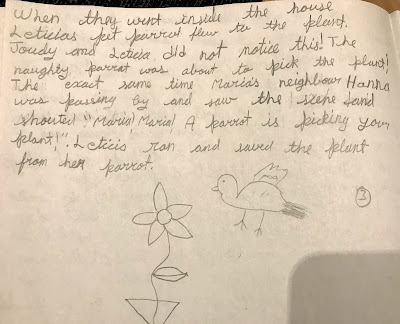 When they went inside the house
Leticias pet parrot flew to the plant.
Joudy and Leticia did not notice this! The
naughty parrot was about to pick the plant!
The exact same time Maria's neighbour Hanna
was passing by and saw the scene and
shouted "Maria! Maria! A parrot is picking your
plant!". Leticia ran and saved the plant
from her parrot.
3